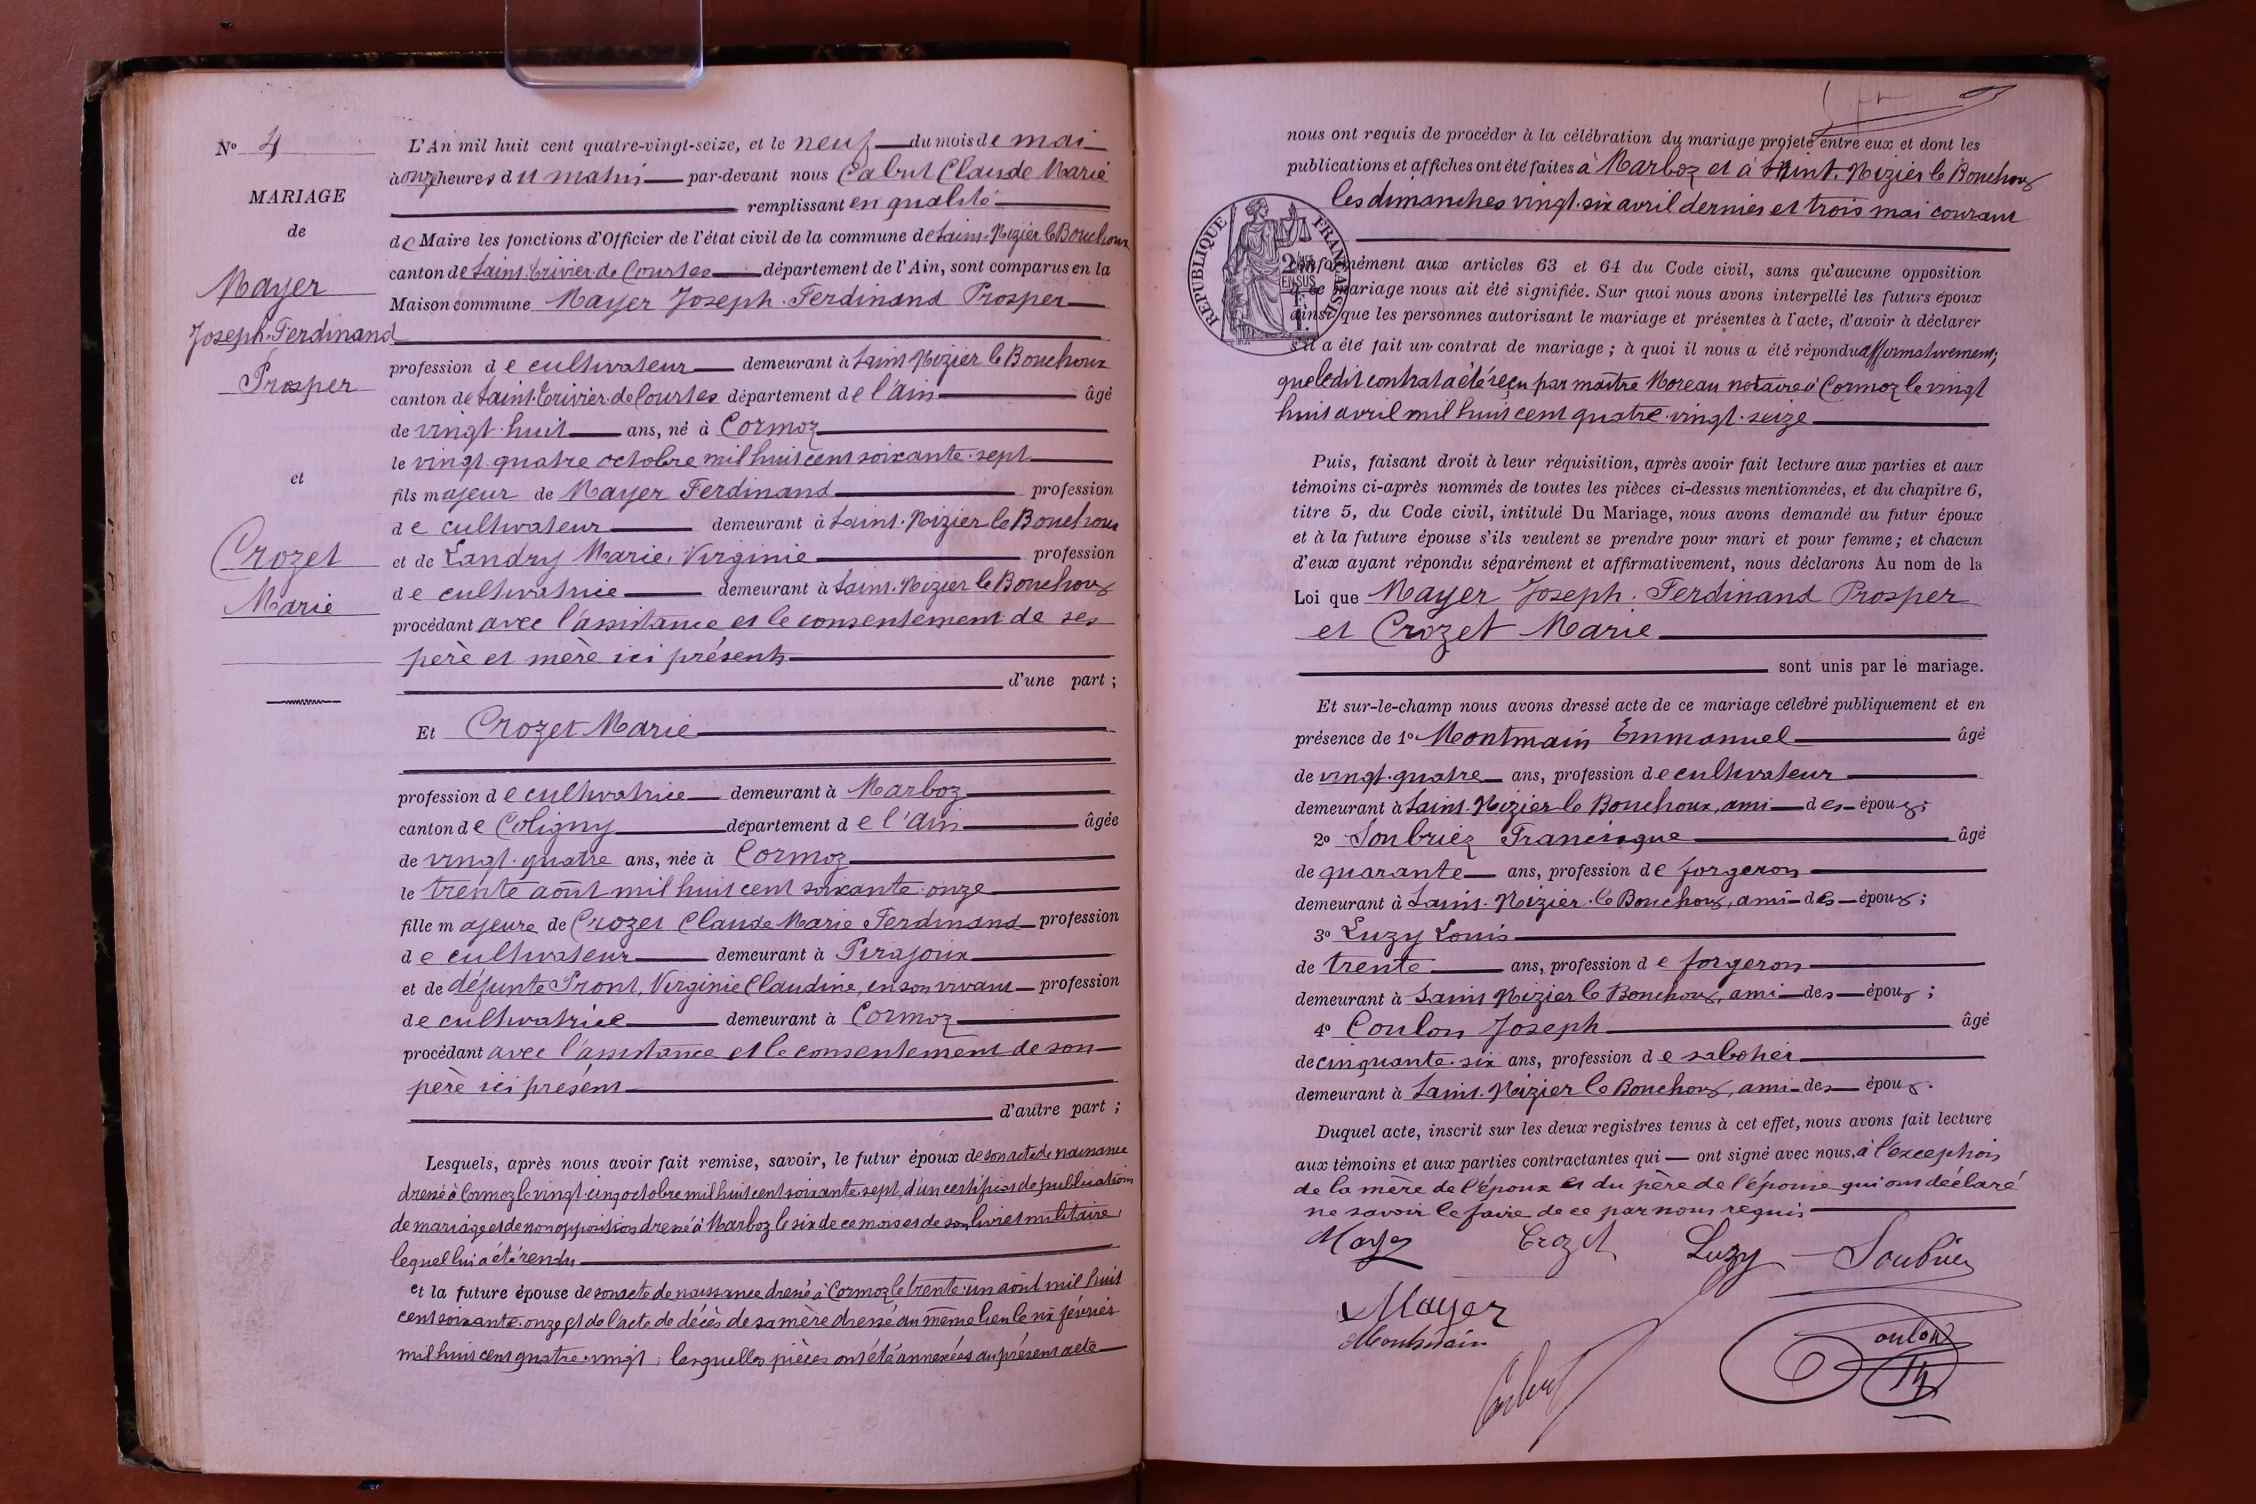 Nº 4
MARIAGE
de
Mayer
Joseph-Ferdinand
Prosper
et
Crozet
Marie
L'An mil huit cent quatre-vingt-seize, et le neuf du mois de mai
à onze heures du matin par-devant nous Cabut Claude Marie
remplissant en qualité
de Maire les fonctions d'Officier de l'état civil de la commune de Saint-Nizier le Bouchoux
canton de Saint-Trivier de Courtes département de l'Ain, sont comparus en la
Maison commune Mayer Joseph-Ferdinand Prosper
profession de cultivateur demeurant à Saint Nizier le Bouchoux
canton de Saint-Trivier-de Courtes département de l'Ain âgé
de vingt-huit ans, né à Cormoz
le vingt-quatre octobre mil huit cent soixante-sept
fils majeur de Mayer Ferdinand profession
de cultivateur demeurant à Saint-Nizier le Bouchoux
et de Landry Marie-Virginie profession
de cultivatrice demeurant à Saint-Nizier le Bouchoux
procédant avec l'assistance et le consentement de ses
père et mère ici présents
d'une part ;
Et Crozet Marie
profession de cultivatrice demeurant à Marboz
canton de Coligny département de l'Ain âgée
de vingt-quatre ans, née à Cormoz
le trente août mil huit cent soixante-onze
fille majeure de Crozet Claude Marie Ferdinand profession
de cultivateur demeurant à Pirajoux
et de défunte Pront, Virginie Claudine, en son vivant profession
de cultivatrice demeurant à Cormoz
procédant avec l'assistance et le consentement de son
père ici présent
d'autre part ;
Lesquels, après nous avoir fait remise, savoir, le futur époux de son acte de naissance
dressé à Cormoz le vingt-cinq octobre mil huit cent soixante-sept, d'un certificat de publications
de mariage et de non opposition dressé à Marboz le six de ce mois et de son livret militaire,
lequel lui a été rendu
et la future épouse de son acte de naissance dressé à Cormoz le trente-un août mil huit
cent soixante-onze et de l'acte de décès de sa mère dressé au même lieu le six février
mil huit cent quatre-vingt ; lesquelles pièces ont été annexées au présent acte
nous ont requis de procéder à la célébration du mariage projeté entre eux et dont les
publications et affiches ont été faites à Marboz et à Saint-Nizier le Bouchoux
les dimanches vingt-six avril dernier et trois mai courant
RÉPUBLIQUE FRANÇAISE
conformément aux articles 63 et 64 du Code civil, sans qu'aucune opposition
à ce mariage nous ait été signifiée. Sur quoi nous avons interpellé les futurs époux
ainsi que les personnes autorisant le mariage et présentes à l'acte, d'avoir à déclarer
s'il a été fait un contrat de mariage ; à quoi il nous a été répondu affirmativement ;
que ledit contrat a été reçu par maître Moreau notaire à Cormoz le vingt
huit avril mil huit cent quatre-vingt-seize
Puis, faisant droit à leur réquisition, après avoir fait lecture aux parties et aux
témoins ci-après nommés de toutes les pièces ci-dessus mentionnées, et du chapitre 6,
titre 5, du Code civil, intitulé Du Mariage, nous avons demandé au futur époux
et à la future épouse s'ils veulent se prendre pour mari et pour femme ; et chacun
d'eux ayant répondu séparément et affirmativement, nous déclarons Au nom de la
Loi que Mayer Joseph-Ferdinand Prosper
et Crozet Marie
sont unis par le mariage.
Et sur-le-champ nous avons dressé acte de ce mariage célébré publiquement et en
présence de 1º Montmain Emmanuel âgé
de vingt-quatre ans, profession de cultivateur
demeurant à Saint-Nizier le Bouchoux, ami des époux ;
2º Soubriez Francisque âgé
de quarante ans, profession de forgeron
demeurant à Saint-Nizier-le Bouchoux, ami des époux ;
3º Luzy Louis
de trente ans, profession de forgeron
demeurant à Saint Nizier le Bouchoux, ami des époux ;
4º Coulon Joseph âgé
de cinquante-six ans, profession de sabotier
demeurant à Saint-Nizier le Bouchoux, ami des époux.
Duquel acte, inscrit sur les deux registres tenus à cet effet, nous avons fait lecture
aux témoins et aux parties contractantes qui ont signé avec nous, à l'exception
de la mère de l'époux et du père de l'épouse qui ont déclaré
ne savoir le faire de ce par nous requis
Mayer Crozet Luzy Soubriez
Mayer
Montmain
Coulon
Cabut